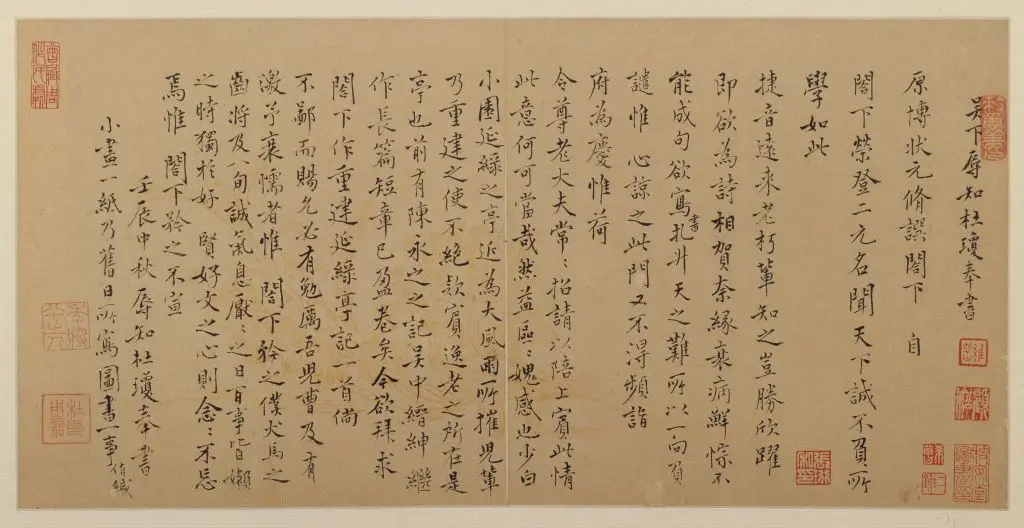 吴下辱知杜瓊奉書
原博狀元脩譔閣下 自
閣下榮登二元名聞天下誠不負所
學如此
捷音遠來老朽輩知之豈勝欣躍
即欲為詩相賀奈緣衰病鮮悰不
能成句欲寫書扎升天之難所以一向負
譴惟 心諒之此門又不得頻詣
府為慶惟荷
令尊老大夫常〻招請以陪上賓此情
此意何可當哉然益區〻媿感也少白
小園延綠之亭近為大風雨所摧兒輩
乃重建之使不絕欵賓逸老之所在是
亭也前有陳永之之記吴中縉紳繼
作長篇短章已盈卷矣今欲拜求
閣下作重建延綠亭記一首倘
不鄙而賜允必有勉厲吾兒曹及有
激予衰懦者惟 閣下矜之僕犬馬之
齒將及八旬誠氣息厭〻之日百事皆嬾
之時獨於好 賢好文之心則念〻不忘
焉惟 閣下矜之不宣
壬辰中秋辱知杜瓊奉書
小畫一紙乃舊日所寫圖書一事侑緘